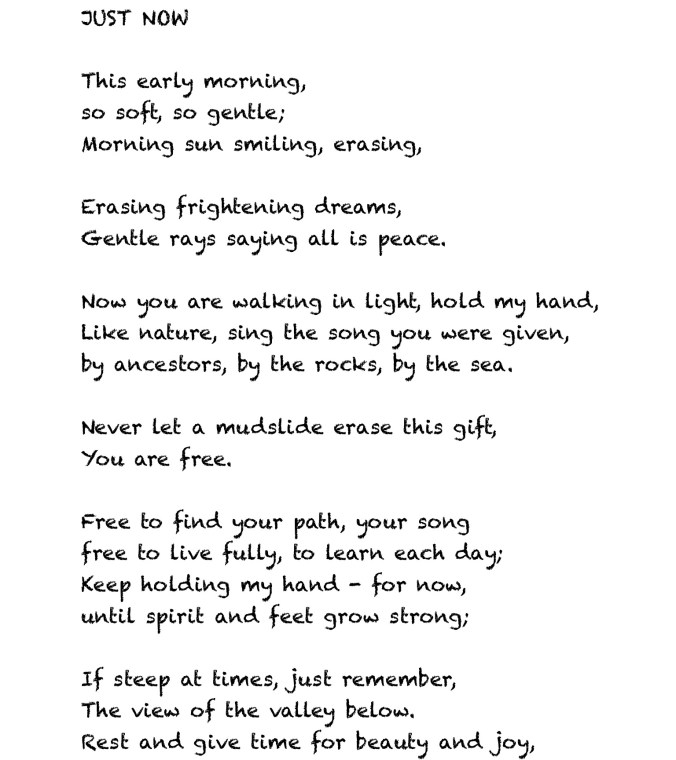 JUST NOW
This early morning,
so soft, so gentle;
Morning sun smiling, erasing,
Erasing frightening dreams,
Gentle rays saying all is peace.
Now you are walking in light, hold my hand,
Like nature, sing the song you were given,
by ancestors, by the rocks, by the sea.
Never let a mudslide erase this gift,
You are free.
Free to find your path, your song
free to live fully, to learn each day;
Keep holding my hand - for now,
until spirit and feet grow strong;
If steep at times, just remember,
The view of the valley below.
Rest and give time for beauty and joy,